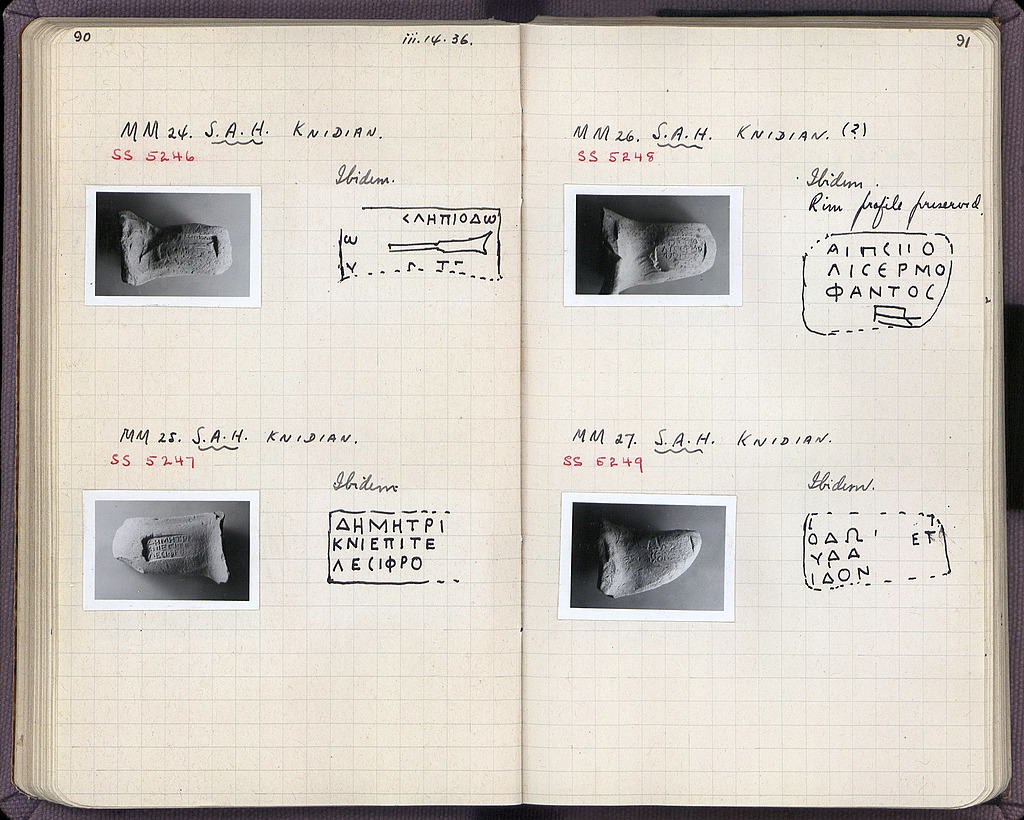 90
iii.14.36.
MM 24. S.A.H. KNIDIAN.
SS 5246
Ibidem.
ϹΛΗΠΙΟΔω
ω
Υ
MM 25. S.A.H. KNIDIAN.
SS 5247
Ibidem
ΔΗΜΗΤΡΙ
ΚΝΙΕΠΙΤΕ
ΛΕϹΙΦΡΟ
91
MM 26. S.A.H. KNIDIAN. (?)
SS 5248
Ibidem.
Rim profile preserved.
ΑΙΠϹΙΙΟ
ΛΙϹΕΡΜΟ
ΦΑΝΤΟϹ
MM 27. S.A.H. KNIDIAN.
SS 5249
Ibidem.
ΟΔΩ ΕΤ
ΥΔΑ
ΙΔΟΝ